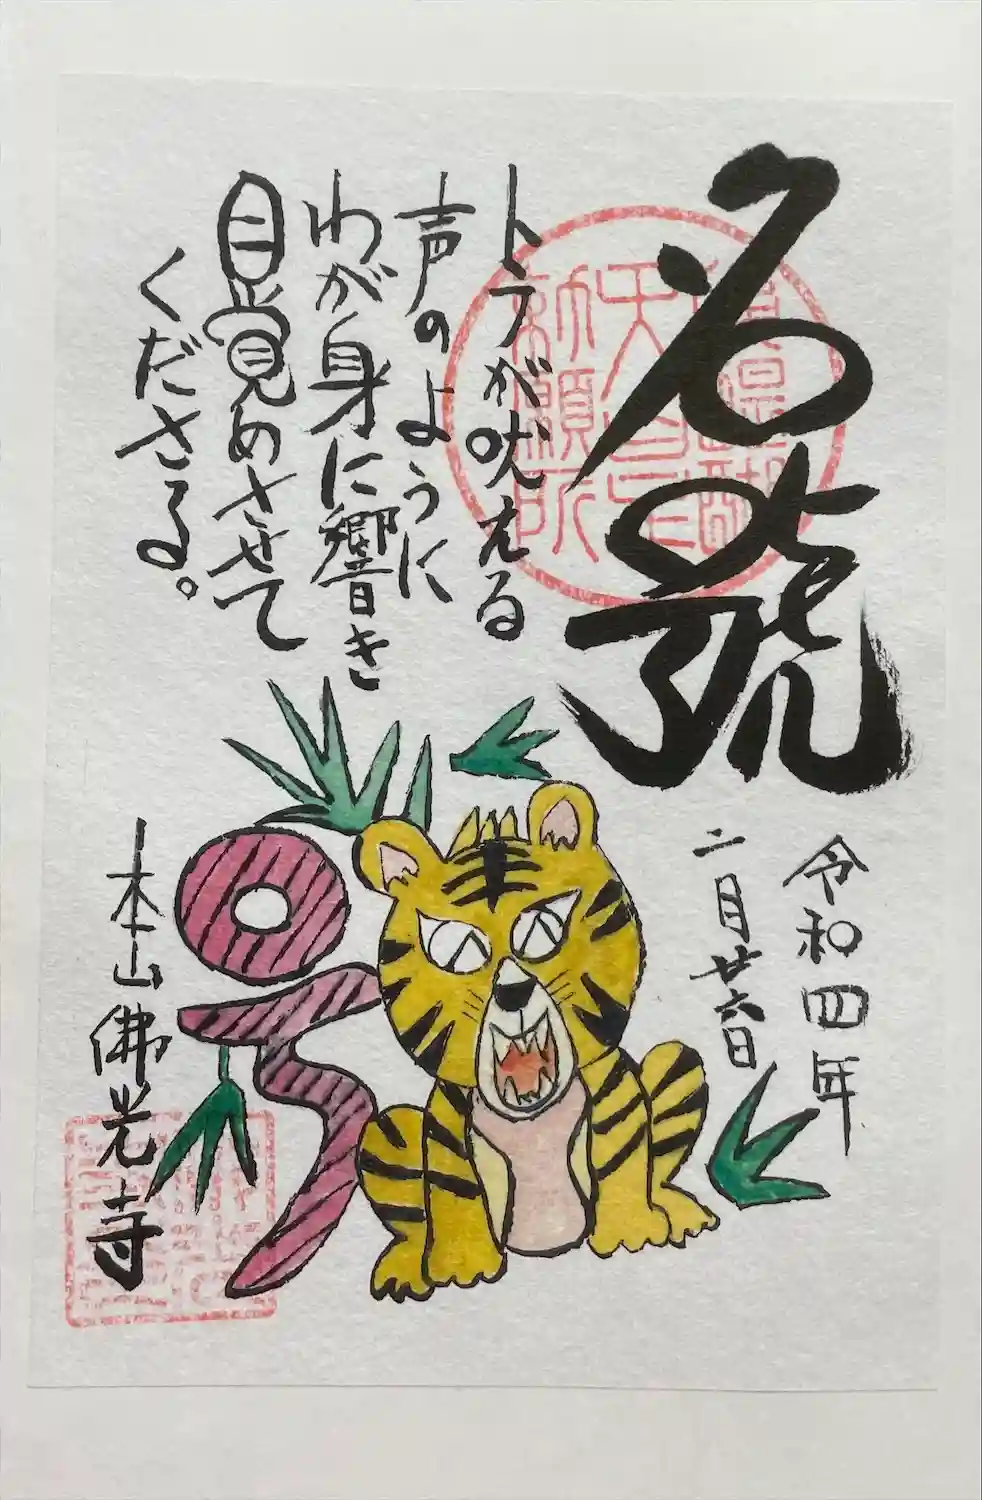 名號
トラが吠える
声のように
わが身に響き
目覚めさせて
くださる。
令和四年
二月廿六日
本山佛光寺